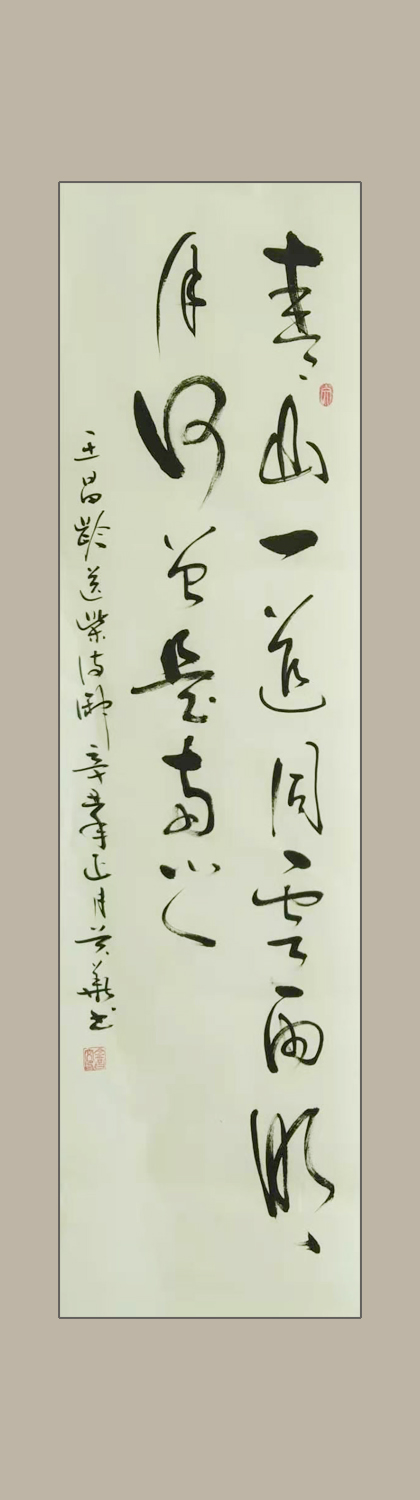 青山一道同雲雨明
月何曾是兩鄉
王昌齡送柴侍御 辛丑年正月 華书